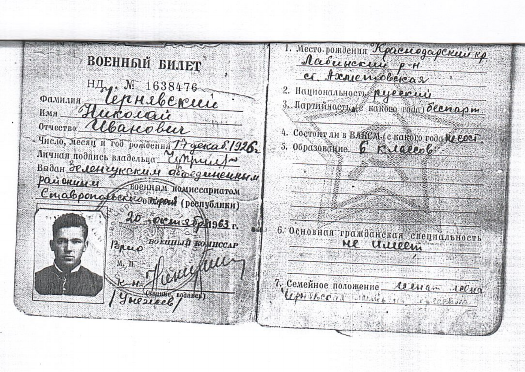 ВОЕННЫЙ БИЛЕТ
НД № 1638476
Фамилия Чернявский
Имя Николай
Отчество Иванович
Число, месяц и год рождения 17 декаб. 1926 г.
Личная подпись владельца
Выдан Зеленчукским объединенным
районным военным комиссариатом
Ставропольского края (республики)
20 октября 1963 г.
Врио ВОЕННЫЙ КОМИССАР
М. П.
1. Место рождения Краснодарский кр.
Лабинский р-н
ст. Ахметовская
2. Национальность русский
3. Партийность (с какого года) беспарт
4. Состоял ли в ВЛКСМ (с какого года) не сост
5. Образование 6 классов
6. Основная гражданская специальность
не имеет
7. Семейное положение женат